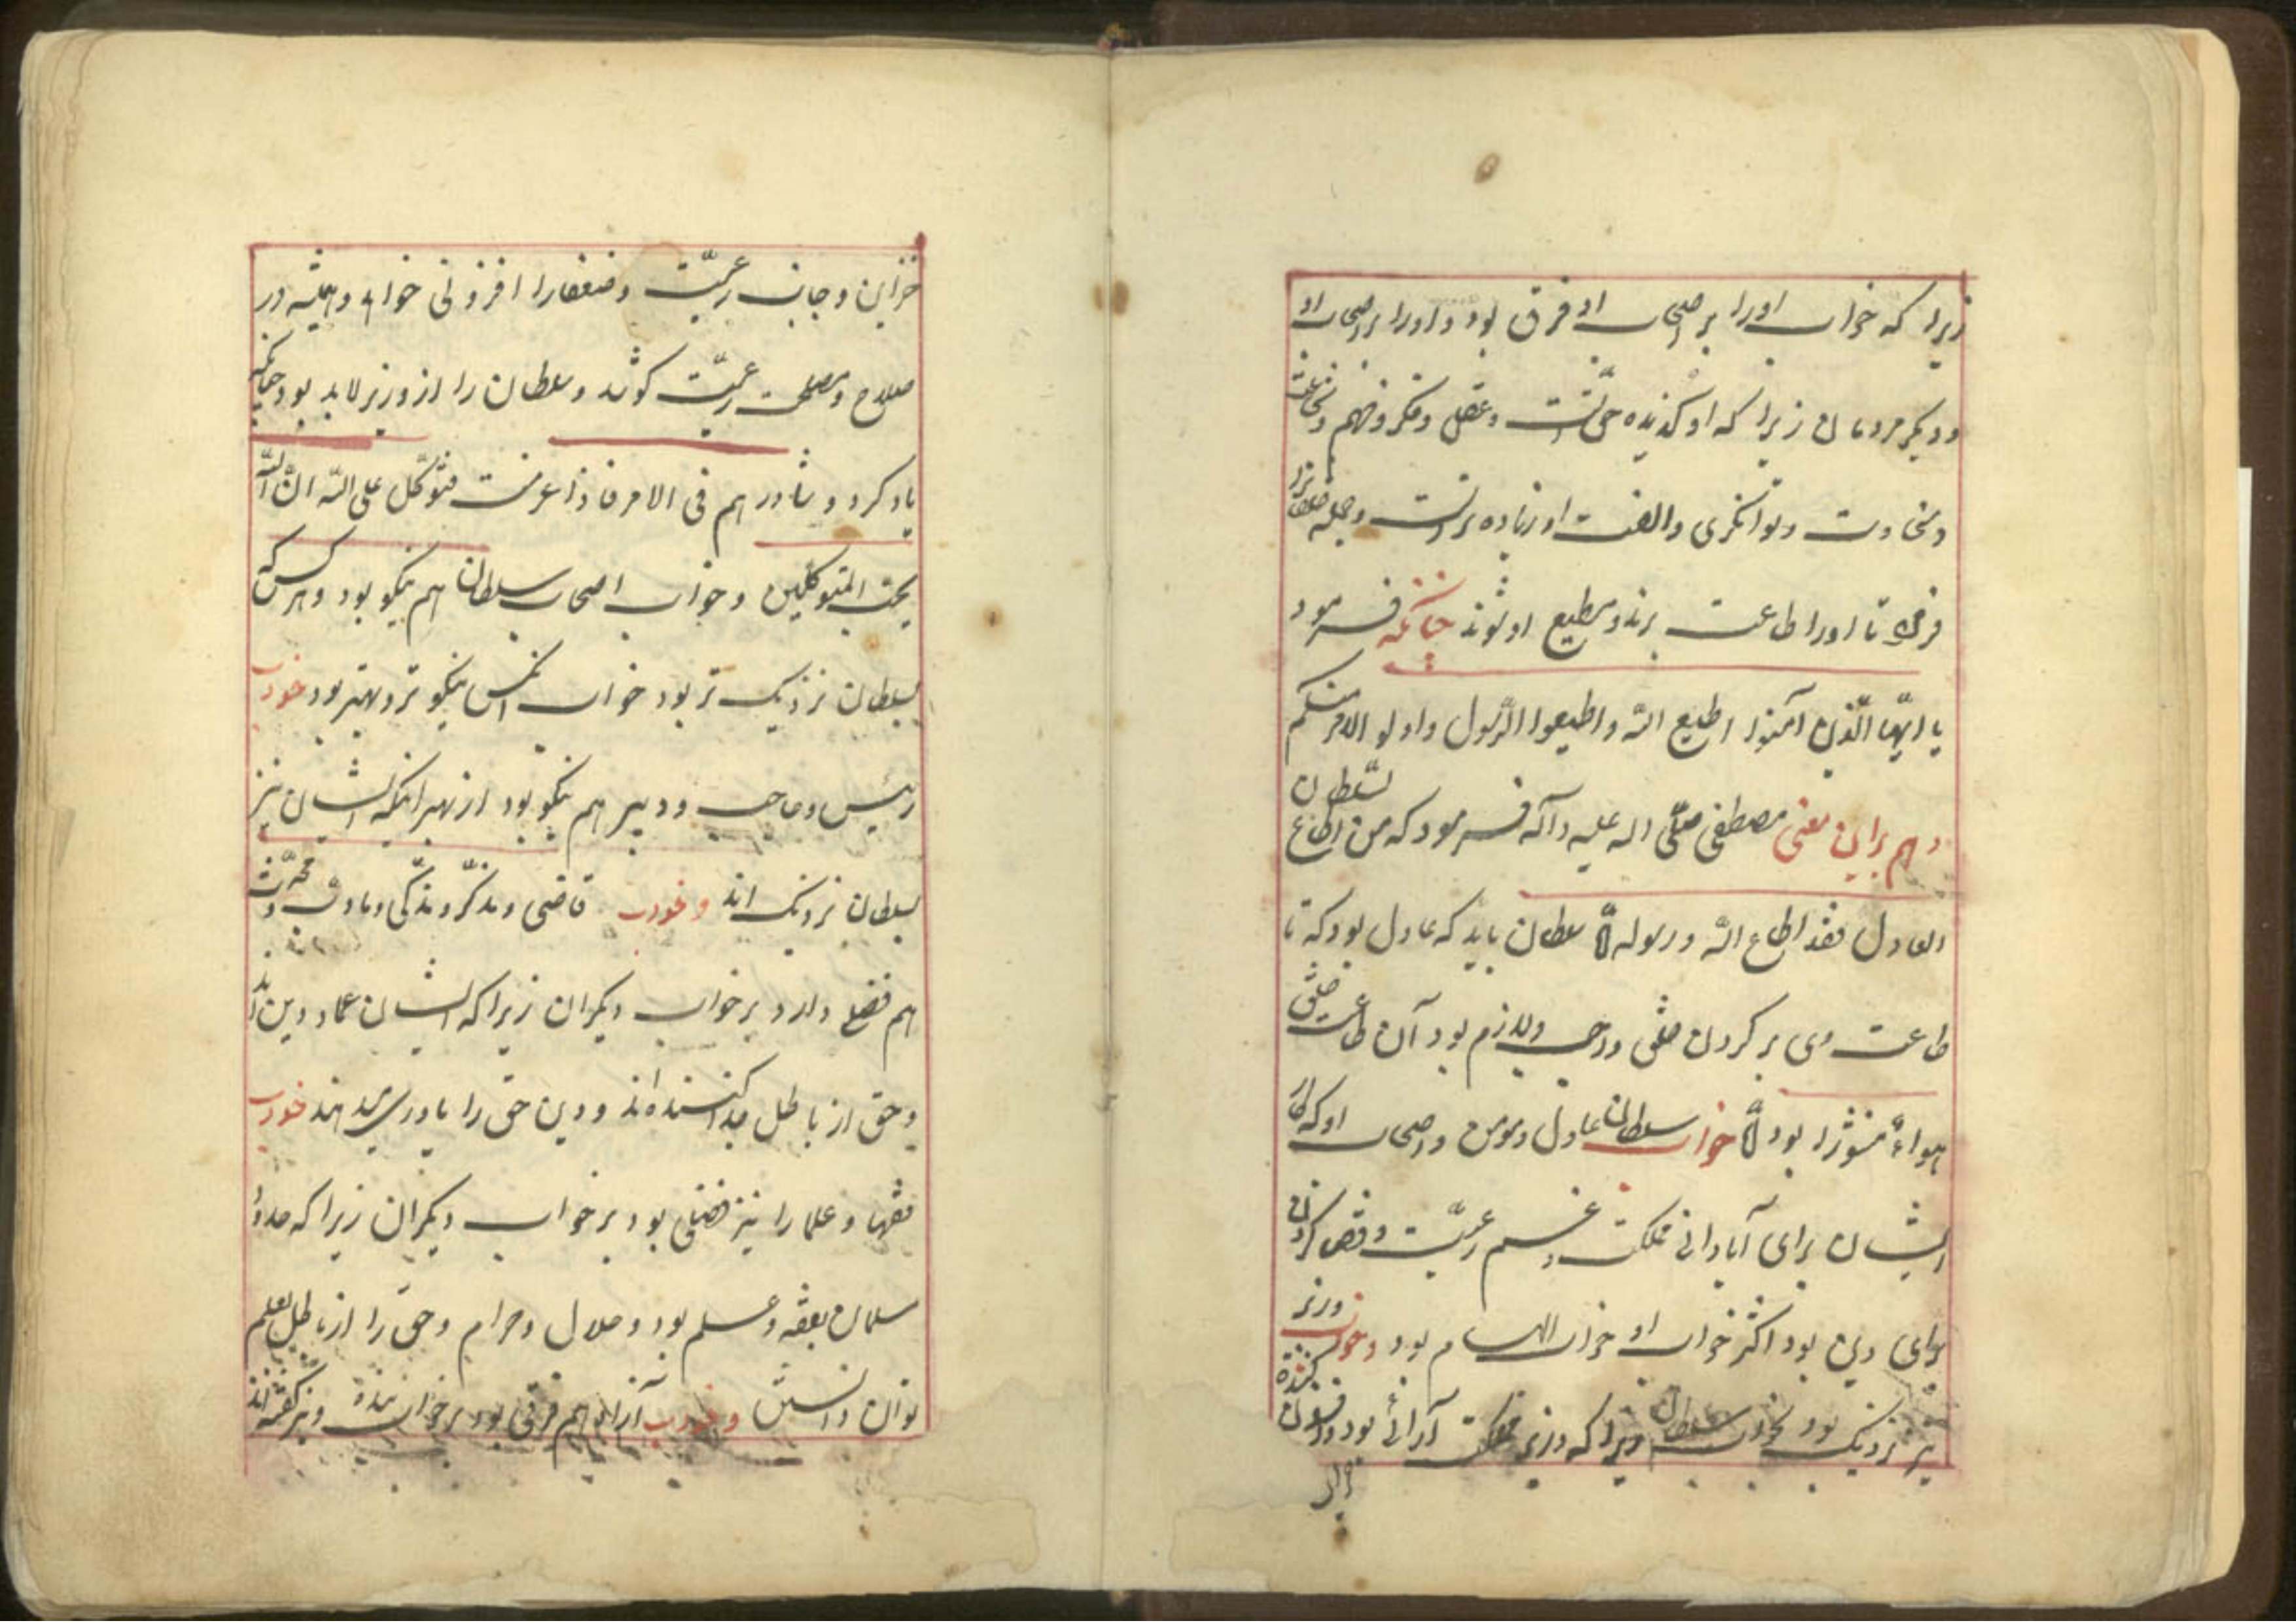 زیرا که خواب او را بر اصحاب او فرق بود و او را بر اصحاب او
و دیگر مردمان زیرا که او گزیده حق است و عقل و فکر و فهم و شجاعت
و سخاوت و توانگری و الفت او زیاده تر است و جمله خلق را
فرمود تا او را طاعت برند و مطیع او شوند چنانکه فرمود
یا ایّها الّذین آمنوا اطیع اللّه و اطیعوا الرّسول و اولو الامر منکم
و هم براین معنی مصطفی صلّی اله علیه و آله فرمود که من اطاع السّلطان
العادل فقد اطاع اللّه و رسوله امّا سلطان باید که عادل بود که تا
طاعت وی بر گردن خلق واجب و لازم بود آن طاعت خلق
هواءً منثورا بود امّا خواب سلطان عادل و مومن و اصحاب او که کار
ایشان برای آبادانی مملکت و غم رعیّت و قصد کردن
برای دین بود اکثر خواب او خواب الهام بود و خواب وزیر
نیز نزدیک بود بخواب سلطان زیرا که وزیر مملکت آرائی بود و افزون کننده
خزاین
خزاین و جانب رعیّت و ضعفا را افزونی خواهد و همیشه در
صلاح و مصلحت رعیّت کوشد و سلطان را از وزیر لابد بود چنانکه
یاد کرد و شاورهم فی الامر فاذا عزمت فتوکّل علی اللّه انّ اللّه
یحبّ المتوکلین و خواب اصحاب سلطان هم نیکو بود و هرکس که
بسلطان نزدیک تر بود خواب آنکس نیکوتر و بهتر بود خواب
رئیس و حاجب و دبیر هم نیکو بود از بهر آنکه ایشان نیز
بسلطان نزدیک اند و خواب قاضی و مذکّر و مذکّی و محدّث
هم فضل دارد بر خواب دیگران زیرا که ایشان عماد دین اند
و حق از باطل جدا کننده اند و دین حق را یاوری میدهند خواب
فقها و علما را نیز فضلی بود بر خواب دیگران زیرا که
مسلمان بفقه و علم بود و حلال و حرام و حقّ را از باطل بعلم
توان دانستن و خواب آزاد هم فرقی بود بر خواب بنده و نیز گفته اند